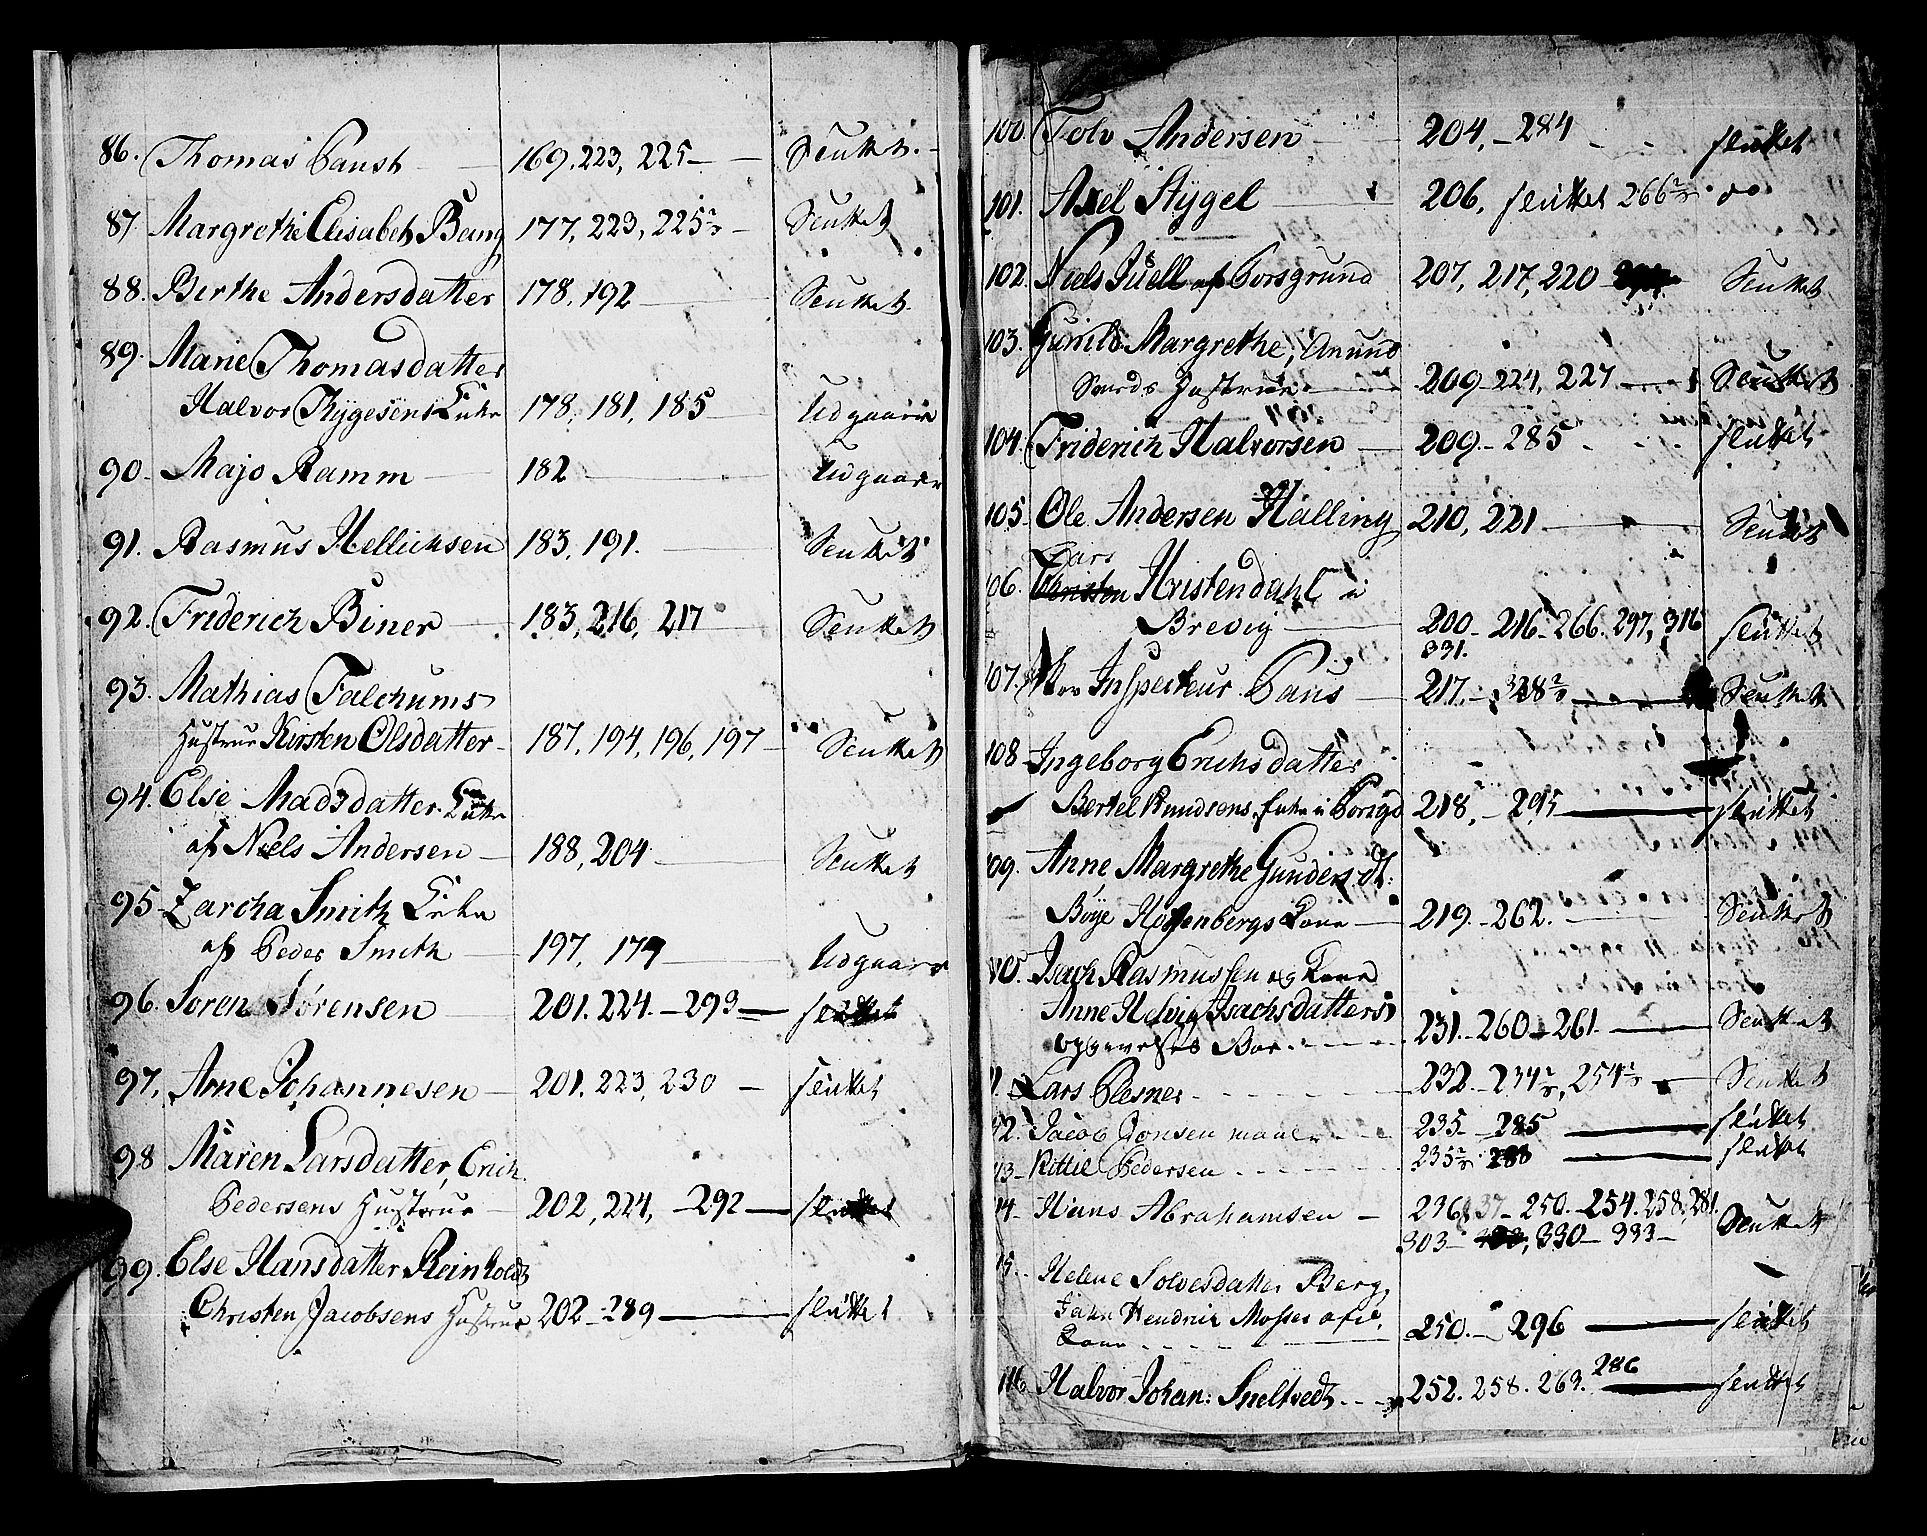 86. Thomas Paush 169. 223, 225 Sluttet.
87. Margrethe Elisabet Bang 177, 223, 225 2/3 Sluttet
88. Berthe Andersdatter 178, 192 Sluttet.
89. Marie Thomasdatter
Halvor Thygesens Enke 178, 181, 185 Udgaar
90. Majo Ramm 182 Udgaar
91. Rasmus Hellichsen 183, 191. Sluttet
92. Friderich Biner 183, 216, 217 Sluttet
93. Mathias Falchums
Hustrue Kirsten Olsdatter 187, 194, 196, 197 Sluttet
94. Else Madsdatter Enke
af Niels Andersen 188, 204 Sluttet
95. Zarcha Smith Enke
af Peder Smith 197, 179 Udgaar
96. Soren Sørensen 201. 224. - 293 sluttet
97. Arne Johannesen 201. 223, 230 sluttet
98 Maren Larsdatter, Erich
Pedersens Hustrue 202, 224, - 292 sluttet
99. Else Hansdatter Reinholdt
Christen Jacobsens Hustrue 202 - 289 sluttet
100. Tolv Andersen 204, - 284 sluttet
101. Axel Stygel 206, sluttet 266 2/3 do
102. Niels Juell af Porsgrund 207, 217, 220 Sluttet
103. Gunild Margrethe, Amund
Hustrue 209 - 224, 227 Sluttet
104. Friderich Halvorsen 209 - 285 sluttet
105. Ole Andersen Halling 210, 221 Sluttet
Lars
106. Christen Kristendahl i
Brevig 200 - 216 - 266. 297, 316 sluttet
331.
107. Hr Inspecteur Paus 217. - 328 2/3 Sluttet
108 Ingeborg Erichsdatter
Bertel Knudsens Enke i Porsgd 218, - 295 sluttet
109. Anne Margrethe Gunders dt:
Böye Kone 219 - 262. Sluttet
110. Isach Rasmussen og Kone
Anne Helvig Isachsdatters
Boe 231. - 260 - 261. Sluttet
11. Lars Plesner 232. - 234 2/3, 254 2/3 Sluttet
12. Jacob Jonsen 235 - 285 sluttet
13. Kittil Pedersen 235 2/3 288 sluttet
14. Hans Abrahamsen 236, 37 - 250. - 254. 258, 281. Sluttet
303 - 330 - 333 -
15. Helene Solvesdatter Berg,
John Hendrik
Kone 250. - 296 sluttet
116 Halvor Johan: Sneltvedt 252. 258. 263. 286 sluttet